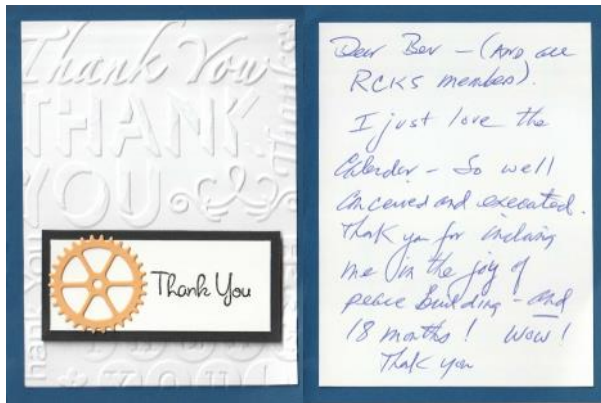 Thank You
THANK
YOU
Thank You
Dear Bev - (And all
RCKS members).
I just love the
Calendar - So well
conceived and executed.
Thank you for including
me in the joy of
peace building - and
18 months! Wow!
Thank you